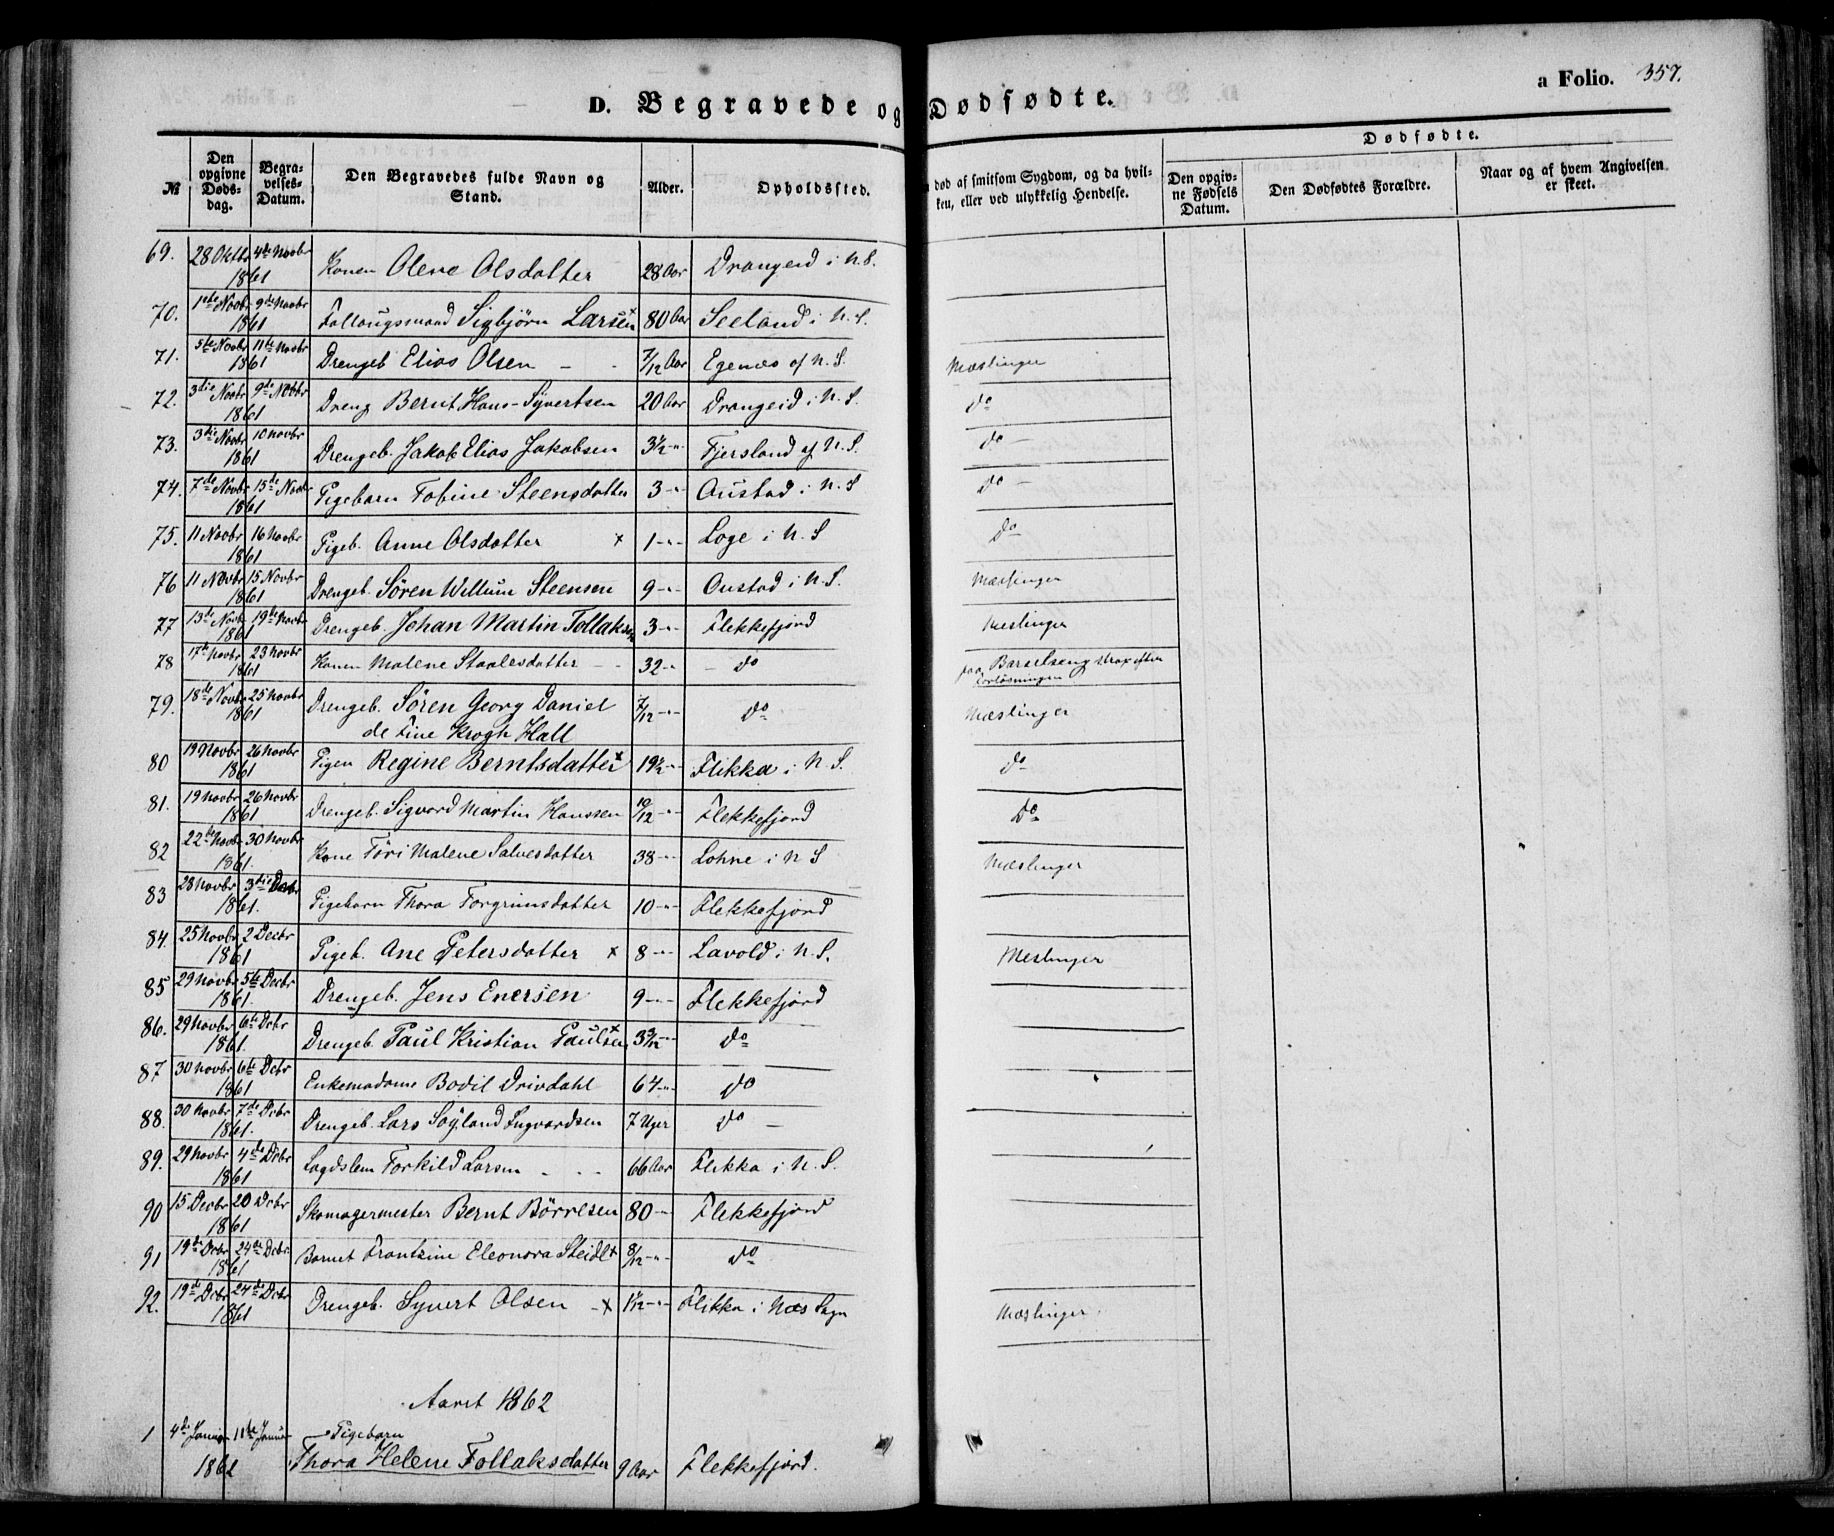 D. Begravede og Dødfødte.
a Folio. 357.
№
Den opgivne Døds-dag.
Begra-velses-Datum.
Den Begravedes fulde Navn og Stand.
Alder.
Opholdssted.
død af smitsom Sygdom, og da hvil-
ken, eller ved ulykkelig Hendelse.
Dødfødte.
Den opgiv-ne Fødsels Datum.
Den Dødfødtes Forældre.
Naar og af hvem Angivelsen er skeet.
69. 28 Oktbr 1861 4de Novbr Konen Olene Olsdatter 28 Aar Drangeid i N.S.
70. 1ste Novbr 1861 9de Novbr Sigbjörn Larsen x 80 Aar Seeland i N.S.
71. 5te Novbr 1861 11te Novbr Drengeb Elias Olsen - - 7/12 Aar Egenæs af N.S. Mæslinger
72. 3die Novbr 1861 9de Novbr Dreng Bernt Hans Syvertsen 20 Aar Drangeid i N.S. do
73. 3die Novbr 1861 10 Novbr Drengeb. Jakob Elias Jakobsen 3½ -"- Fjersland af N.S. do -
74. 7de Novbr 1861 15de Novbr Pigebarn Tobine Steensdatter 3 -"- Oustad i N.S do -
75. 11 Novbr 1861 16 Novbr Pigeb. Anne Olsdatter x 1 -"- Loge i N.S do
76 11 Novbr 1861 15 Novbr Drengeb. Sören Willum Steensen 9 -"- Oustad i N.S. Mæslinger
77 13de Novbr 1861 19de Novbr Drengeb. Johan Martin Tollaksen 3 -"- Flekkefjord Meslinger
78 17de Novbr 1861 23 Novbr Konen Malene Staalesdatter - - 32 -"- - do paa Barselseng strax efter Forløsningen
79. 18de Novbr 1861 25 Novbr Drengeb. Sören Georg Daniel
de Fine Krogh Hall 7/12 -"- do Mæslinger
80 19 Novbr 1861 26 Novbr Pigen Regine Berntsdatter x 19½ -"- Flikka i N.S. do
81. 19 Novbr 1861 26 Novbr Drengeb. Sigvard Martin Hanssen 10/12 -"- Flekkefjord Do
82 22de Novbr 1861. 30 Novbr Kone Töri Malene Salvesdatter 38 -"- Lohne i N S Mæslinger
83 28 Novbr 1861. 3die Decbr Pigebarn Thora Torgrimsdatter 10 -"- Flekkefjord
84. 25 Novbr 1861 2 Decbr Pigeb. Ane Petersdatter x 8 -"- Lavold i N.S. Meslinger
85 29 Novbr 1861. 5te Decbr Drengeb. Jens Enersen 9 -"- Flekkefjord
86. 29 Novbr 1861. 6te Dcbr Drengeb. Paul Kristian Paulsen x 3 3/12 -"- do
87 30 Novbr 1861 6te Dcbr Enkemadame Bodil Drivdahl 64 -"- do
88. 30 Novbr 1861. 7de Dcbr Drengeb. Lars Söyland Ingvardsen 7 Uger do -
89. 29 Novbr 1861 4de Dcbr Lægdslem Torkild Larsen - - - 66 Aar Flikka i N.S.
90 15 Decbr 1861 20 Dcbr Skomagermester Bernt Börresen 80 -"- Flekkefjord
91 19de Dcbr 1861 24de Dcbr. Barnet Frantzine Eleonora Steidl x 8/12 -"- do
92. 19de Dcbr 1861 24de Dcbr Drengeb. Syvert Olsen - x 1 1/12 -"- Flikka i Næs Sogn Mæslinger.
Aaret 1862
1 4de Januar 1862 11te Januar Pigebarn
Thora Helene Tollaksdatter 9 Aar Flekkefjord.